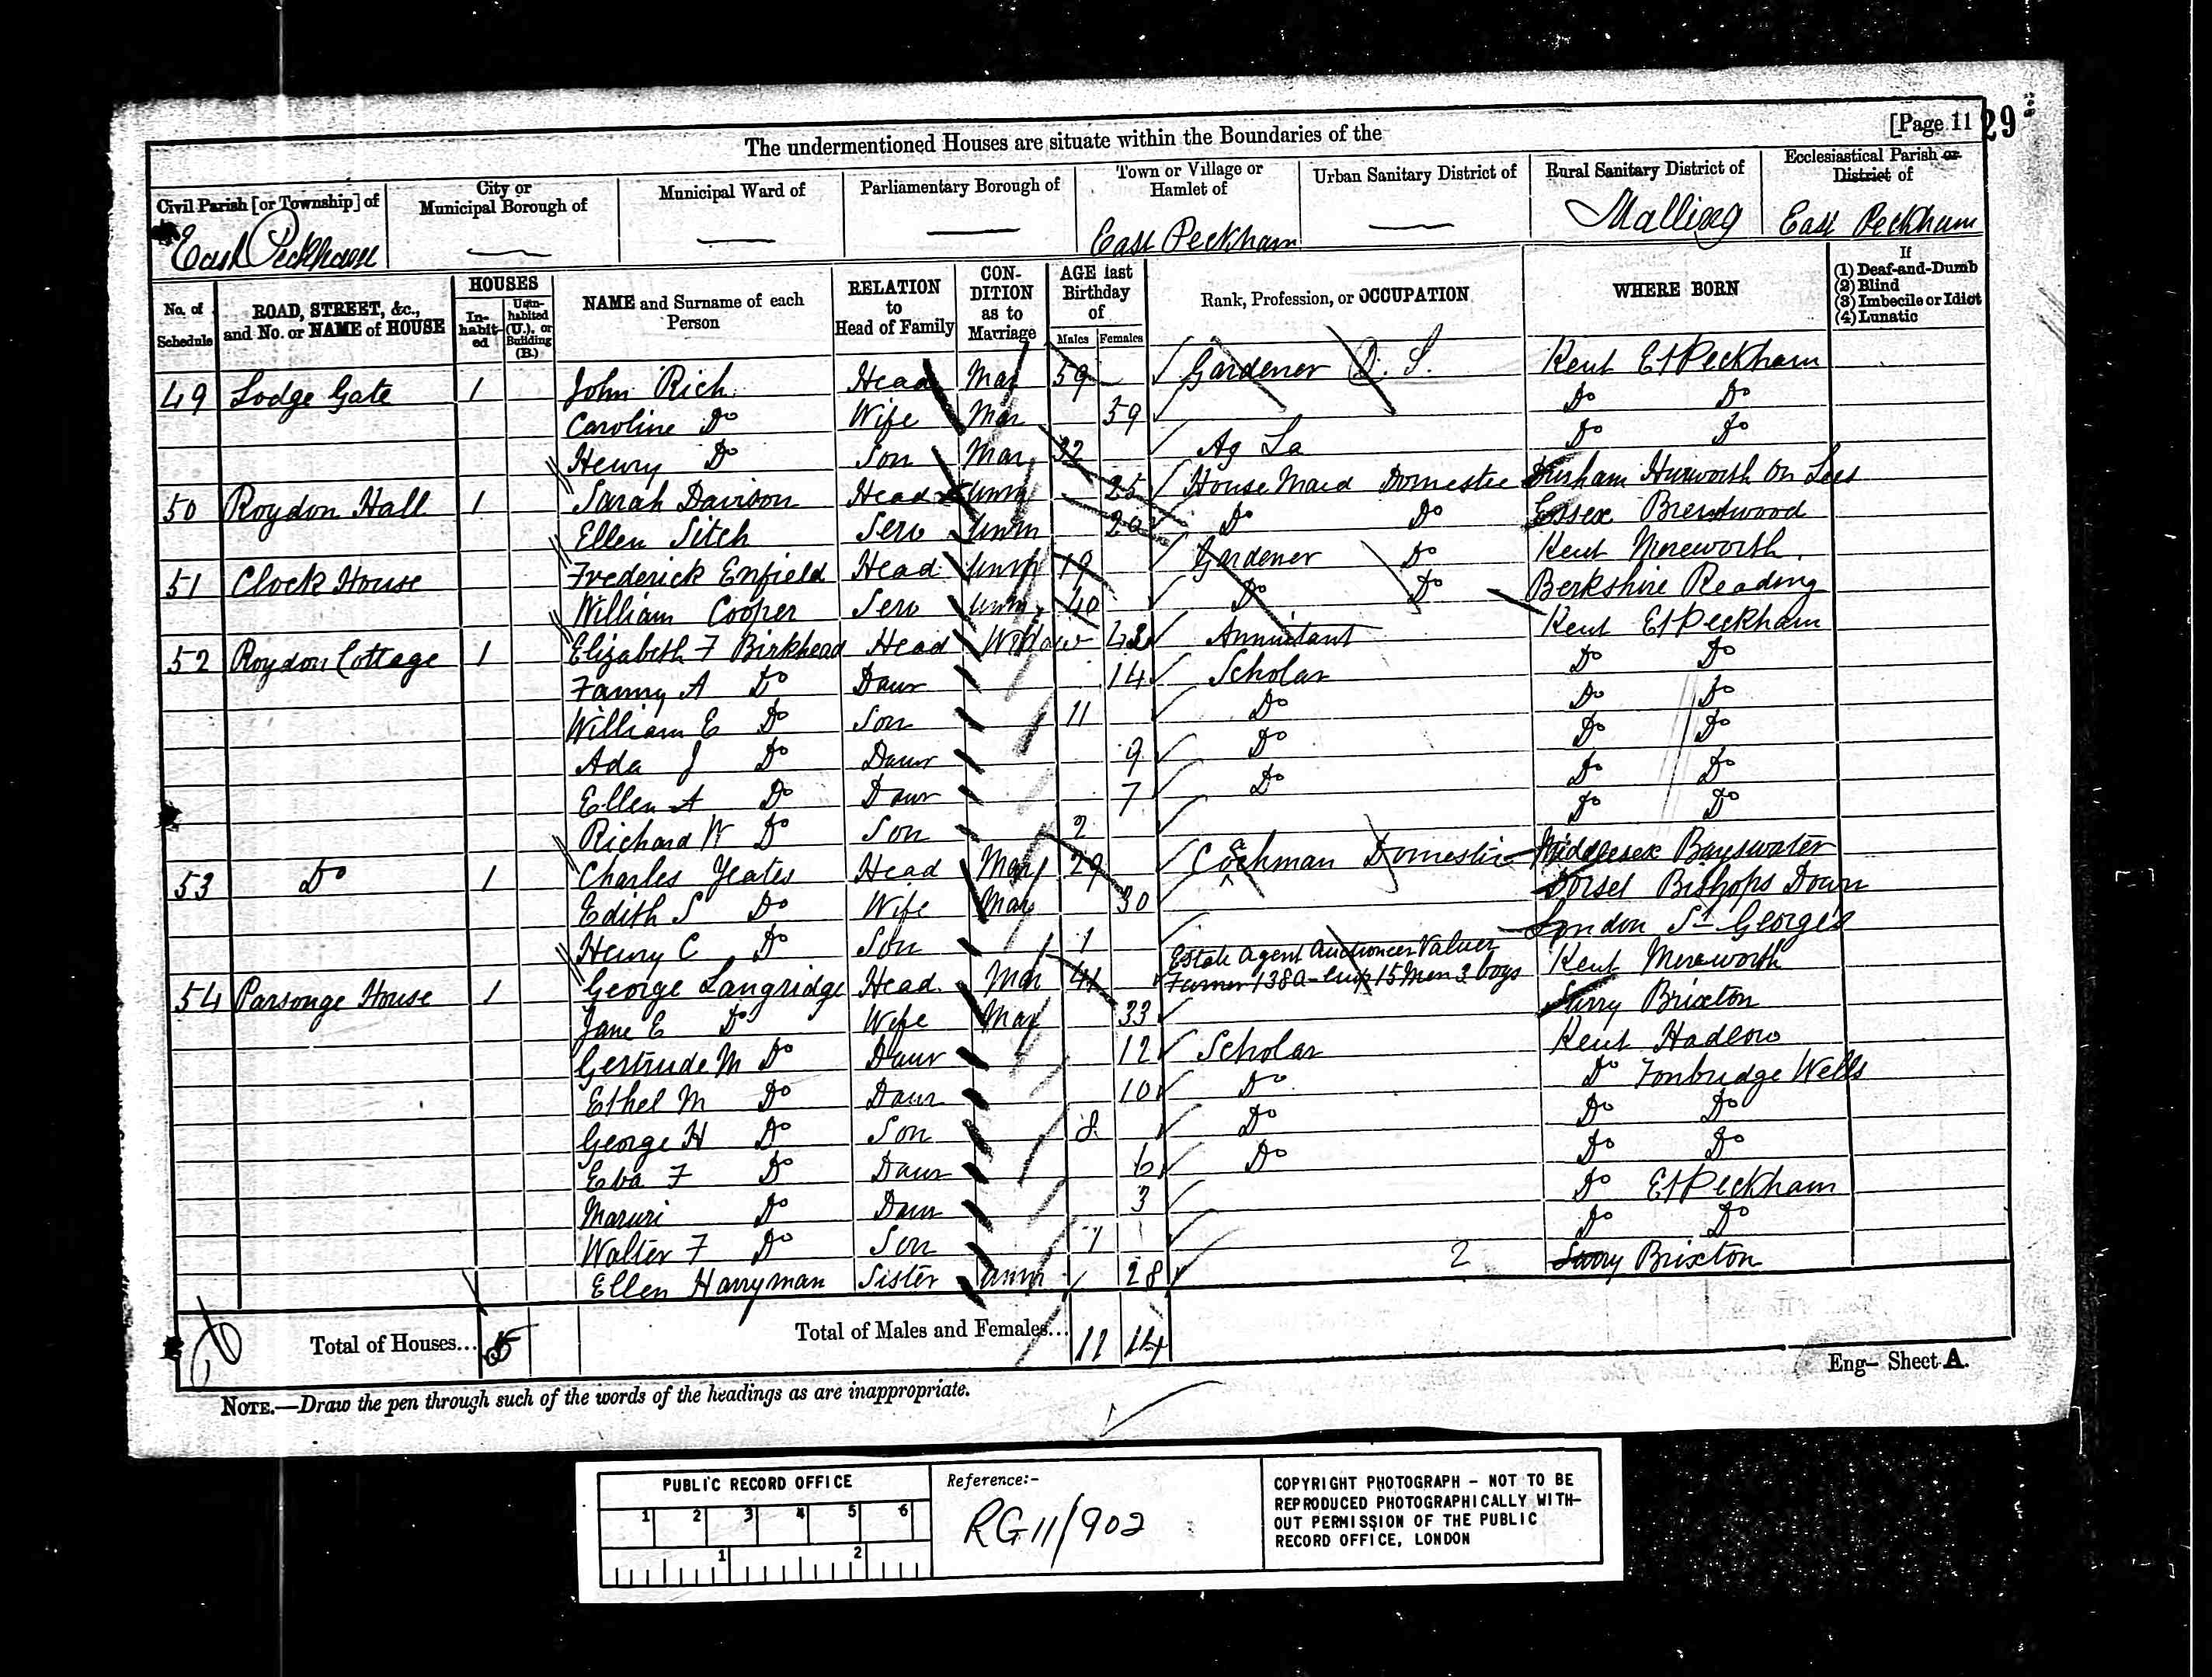 [Page 11
29
The undermentioned Houses are situate within the Boundaries of the
Civil Parish [or Township] of
East Peckham
City or Municipal Borough of
Municipal Ward of
Parliamentary Borough of
Town or Village or Hamlet of
East Peckham
Urban Sanitary District of
Rural Sanitary District of
Malling
Ecclesiastical Parish or District of
East Peckham
No. of Schedule
ROAD, STREET, &c., and No. or NAME of HOUSE
HOUSES
In-habit-ed
Unin-habited (U.), or Building (B.)
NAME and Surname of each Person
RELATION to Head of Family
CON-DITION as to Marriage
AGE last Birthday of
Males Females
Rank, Profession, or OCCUPATION
WHERE BORN
If
(1) Deaf-and-Dumb
(2) Blind
(3) Imbecile or Idiot
(4) Lunatic
49 Lodge Gate 1 John Rich Head Mar 59 Gardener D. S. Kent Et Peckham
Caroline Do Wife Mar 59 Do Do
Henry Do Son Mar 32 Ag La Do Do
50 Roydon Hall 1 Sarah Davison Head Unm 25 House Maid Domestic Durham Hurworth On Tees
Ellen Sitch Serv Unm 20 Do Do Essex Brentwood
51 Clock House Frederick Enfield Head Unm 19 Gardener Do Kent Mereworth
William Cooper Serv Unm 40 Do Do Berkshire Reading
52 Roydon Cottage 1 Elizabeth F Birkhead Head Widow 43 Annuitant Kent Et Peckham
Fanny A Do Daur 14 Scholar Do Do
William E Do Son 11 Do Do Do
Ada J Do Daur 9 Do Do Do
Ellen A Do Daur 7 Do Do Do
Richard W Do Son 2 Do Do
53 Do 1 Charles Yeates Head Mar 29 Coachman Domestic Middlesex Bayswater
Edith S Do Wife Mar 30 Dorset Bishops Down
Henry C Do Son 1 London St Georges
54 Parsonge House 1 George Langridge Head Mar 41 Estate Agent Auctioneer Valuer
Farmer 138a- emp 15 Men 3 boys Kent Mereworth
Jane E Do Wife Mar 33 Surry Brixton
Gertrude M Do Daur 12 Scholar Kent Hadlow
Ethel M Do Daur 10 Do Do Tonbridge Wells
George H Do Son 8 Do Do Do
Eva F Do Daur 6 Do Do Do
Do Daur 3 Do Et Peckham
Walter F Do Son 1 Do Do
Ellen Harryman Sister Unm 28 2 Surry Brixton
Total of Houses... 5
Total of Males and Females... 11 14
Eng- Sheet A.
NOTE.—Draw the pen through such of the words of the headings as are inappropriate.
PUBLIC RECORD OFFICE
1 2 3 4 5 6
1 2
Reference:-
RG 11/902
COPYRIGHT PHOTOGRAPH - NOT TO BE
REPRODUCED PHOTOGRAPHICALLY WITH-
OUT PERMISSION OF THE PUBLIC
RECORD OFFICE, LONDON